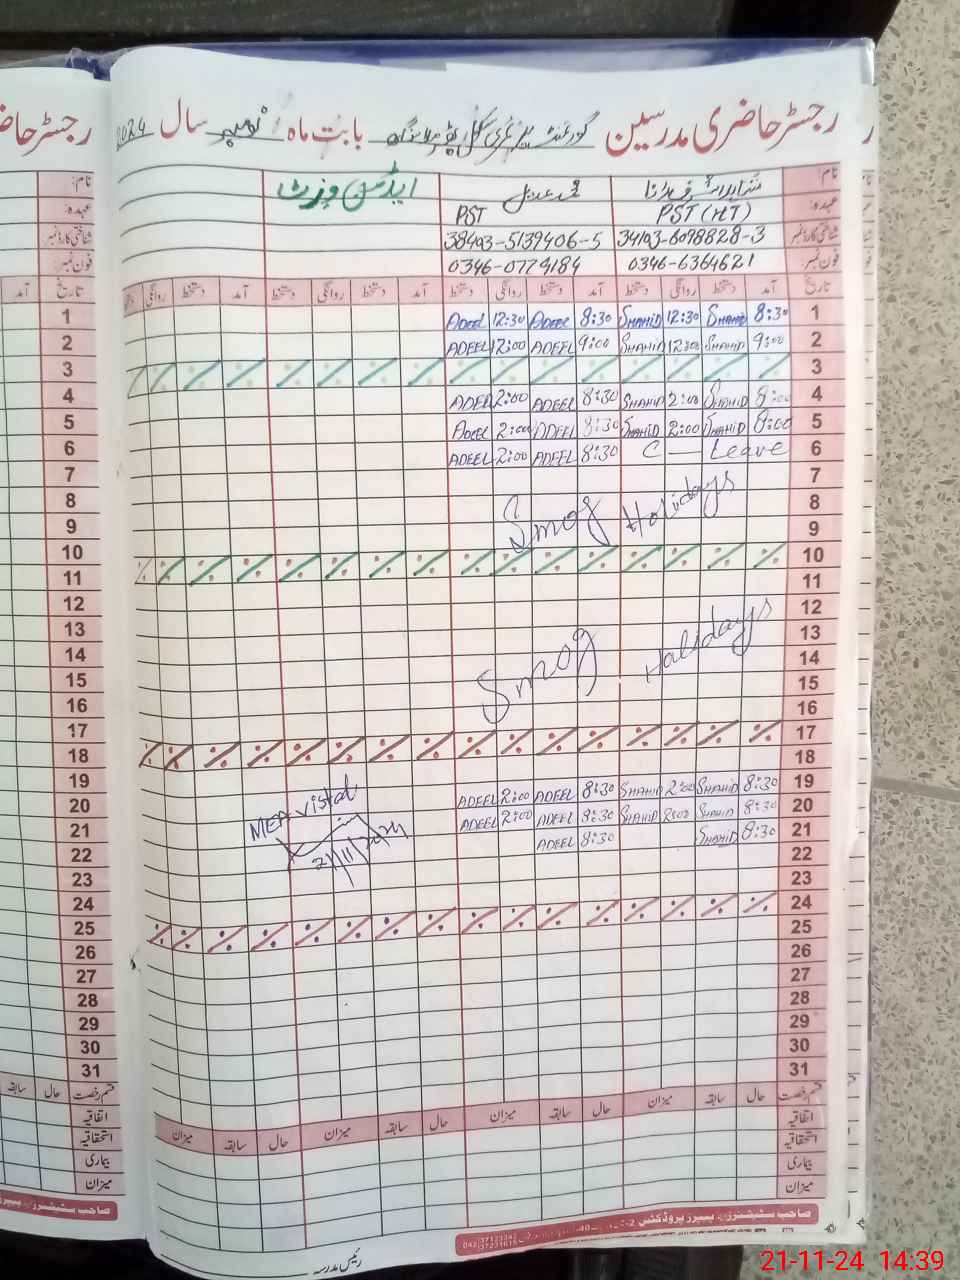 رجسٹر حاضری مدرسین گورنمنٹ بابت ماہ نومبر سال 2024
نام:
عہدہ: PST (HT) PST
شناختی کارڈ نمبر 34103-6098828-3 38403-5139406-5
فون نمبر: 0346-6364621 0346-0779184
تاریخ آمد دستخط روانگی دستخط آمد دستخط روانگی دستخط آمد دستخط روانگی دستخط آمد دستخط روانگی
1 8:30 SHAHID 12:30 SHAHID 8:30 Adeel 12:30 Adeel
2 9:00 SHAHID 12:00 SHAHID 9:00 ADEEL 12:00 ADEEL
3
4 8:00 SHAHID 2:00 SHAHID 8:30 ADEEL 2:00 ADEEL
5 8:00 SHAHID 2:00 SHAHID 8:30 ADEEL 2:00 Adeel
6 C — Leave 8:30 ADEEL 2:00 ADEEL
7
8 Smog Holidays
9
10
11
12
13
14 Smog Holidays
15
16
17
18
19 8:30 SHAHID 2:00 SHAHID 8:30 ADEEL 2:00 ADEEL
20 8:30 SHAHID 2:00 SHAHID 8:30 ADEEL 2:00 ADEEL
21 8:30 SHAHID 8:30 ADEEL
MEA Visted
21/11/2024
22
23
24
25
26
27
28
29
30
31
قسم رخصت حال سابقہ میزان حال سابقہ میزان حال سابقہ میزان حال سابقہ میزان
اتفاقیہ
استحقاقیہ
بیماری
میزان
صاحب سٹیشنرز پیپرز پروڈکشن
042-37123342
37231615
رئیس مدرسہ
رجسٹر حاضری
آمد
سابقہ حال قسم رخصت
اتفاقیہ
استحقاقیہ
بیماری
میزان
21-11-24 14:39